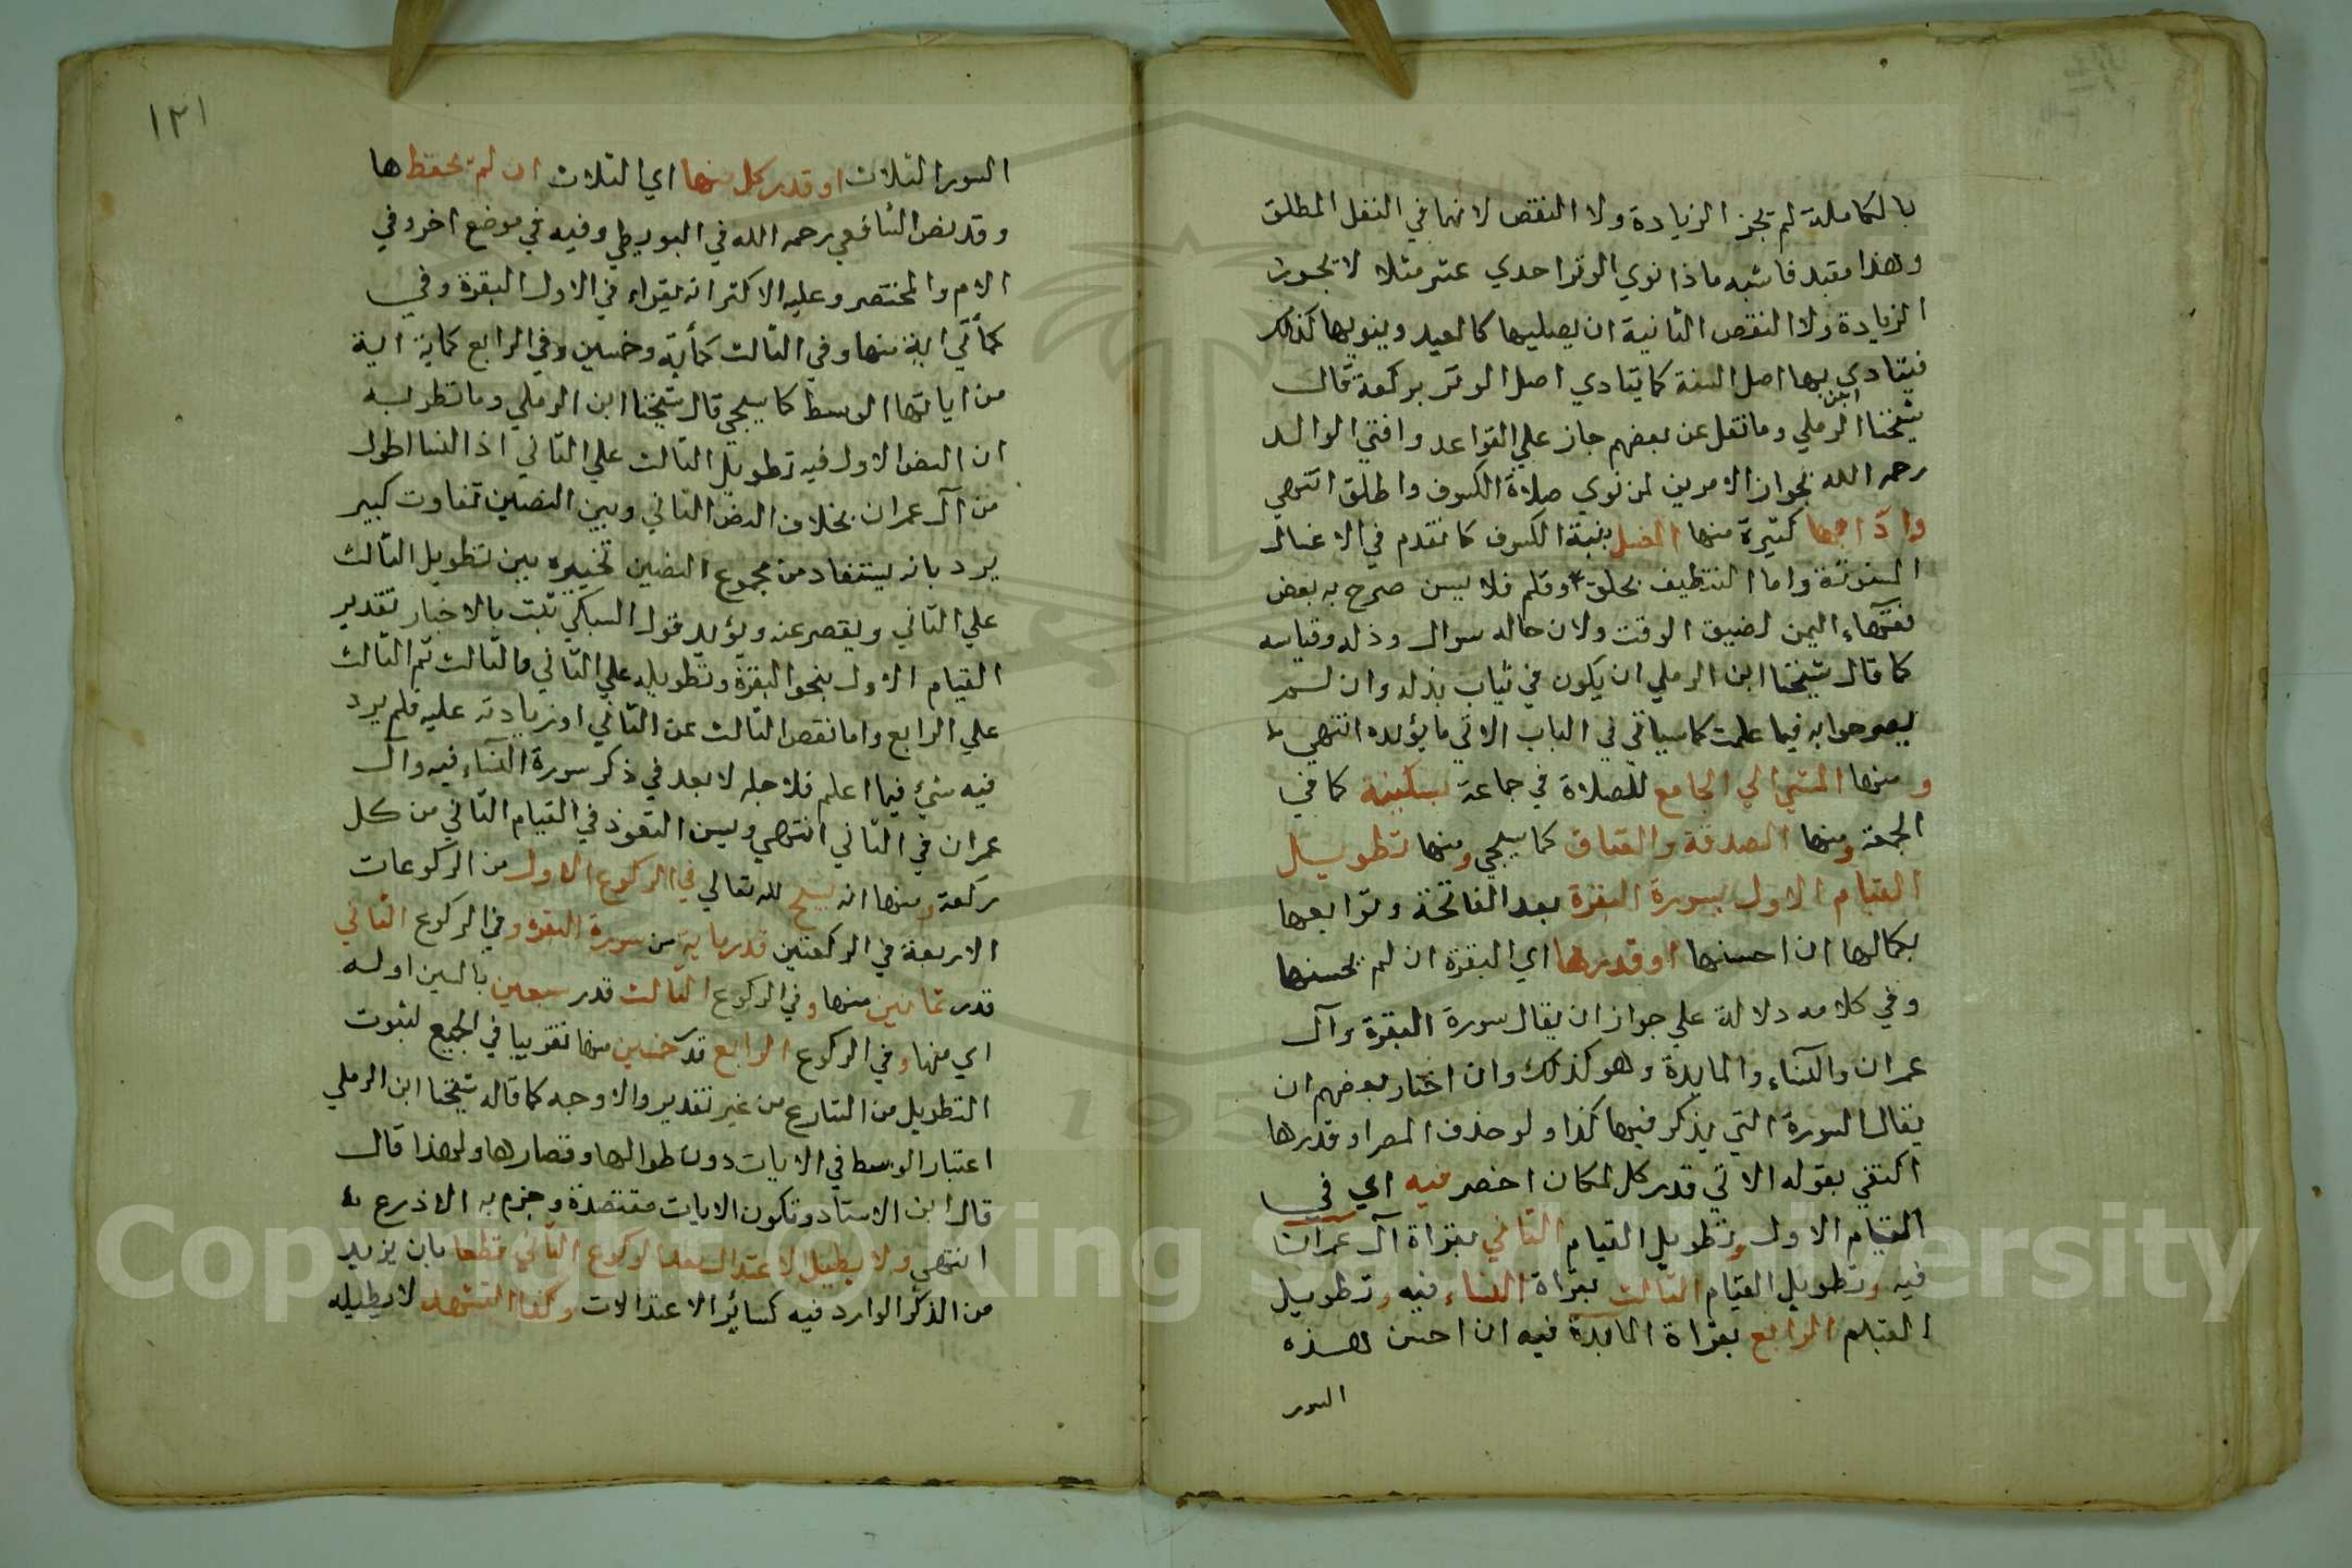 بالكاملة لم تجز الزيادة ولا النقص لانهما في النفل المطلق
وهذا مقيد فاشبه ماذا نوي الوتر احدي عشر مثلا لا تجوز
الزيادة ولا النقص الثانية ان يصليها كالعيد وينويها كذلك
فيتادي بها اصل السنة كما يتادي اصل الوتر بركعة قال
شيخنا ابن الرملي وما نقل عن بعضهم جاز علي القواعد وافتي الوالد
رحمه الله بجواز الامرين لمن نوي صلاة الكسوف واطلق انتهي
وادابها كثيرة منها الغسل بنية الكسوف كما تقدم في الاغسال
المسنونة واما التنظيف بحلق وقلم فلا يسن صرح به بعض
فقهاء اليمن لضيق الوقت ولان حاله سوال وذله وقياسه
كما قال شيخنا ابن الرملي ان يكون في ثياب بذله وان لم
يصرحوا به فيما علمت كما سياتي في الباب الاتي ما يؤيده انتهي
ومنها المشي الي الجامع للصلاة في جماعة بسكينة كما في
الجمعة ومنها الصدقة والعتاق كما سيجي ومنها تطويل
القيام الاول بسورة البقرة بعد الفاتحة وتوابعها
بكمالها ان احسنها او قدرها اي البقرة ان لم يحسنها
وفي كلامه دلالة علي جواز ان يقال سورة البقرة وآل
عمران والنساء والمايدة وهو كذلك وان اختار بعضهم ان
يقال السورة التي يذكر فيها كذا ولو حذف المص او قدرها
اكتفي بقوله الاتي قدر كل لمكان اخصر فيه اي في
القيام الاول وتطويل القيام الثاني بقراة آل عمران
فيه وتطويل القيام الثالث بقراة النساء فيه وتطويل
القيام الرابع بقراة المايدة فيه ان احسن هذه
السور
١٢١
السور الثلاث او قدر كل منها اي الثلاث ان لم يحفظها
وقد نص الشافعي رحمه الله في البويطي وفيه في موضع اخر وفي
الام والمختصر وعليه الاكثر انه يقراء في الاول البقرة وفي
كمأتي اية منها وفي الثالث كمأية وخمسين وفي الرابع كماية اية
من اياتها الوسط كما سيجي قال شيخنا ابن الرملي وما نظر به
ان النص الاول فيه تطويل الثالث علي الثاني اذ النسا اطول
من آل عمران بخلاف النص الثاني وبين النصين تفاوت كبير
يرد بانه يستفاد من مجموع النصين تخييره بين تطويل الثالث
علي الثاني ويقصر عنه ويؤيد قول السبكي ثبت بالاخبار تقدير
القيام الاول بنحو البقرة وتطويله علي الثاني والثالث ثم الثالث
علي الرابع واما نقص الثالث عن الثاني او زيادته عليه فلم يرد
فيه شيئ فيما اعلم فلاجله لا بعد في ذكر سورة النساء فيه وآل
عمران في الثاني انتهي ويسن التعوذ في القيام الثاني من كل
ركعة ومنها انه يسبح لله تعالي في الركوع الاول من الركوعات
الاربعة في الركعتين قدر ماية من سورة البقرة وفي الركوع الثاني
قدر ثمانين منها وفي الركوع الثالث قدر سبعين بالسين اوله
اي منها وفي الركوع الرابع قدر خمسين منها تقريبا في الجميع لثبوت
التطويل من الشارع من غير تقدير والاوجه كما قاله شيخنا ابن الرملي
اعتبار الوسط في الايات دون طوالها وقصارها ولهذا قال
قال ابن الاستاد وتكون الايات مقتصدة وجزم به الاذرع
انتهي ولا يطيل الاعتدال بعد الركوع الثاني قطعا بان يزيد
من الذكر الوارد فيه كسائر الاعتدالات وكذا التشهد لا يطيله
Copyright © King Saud University